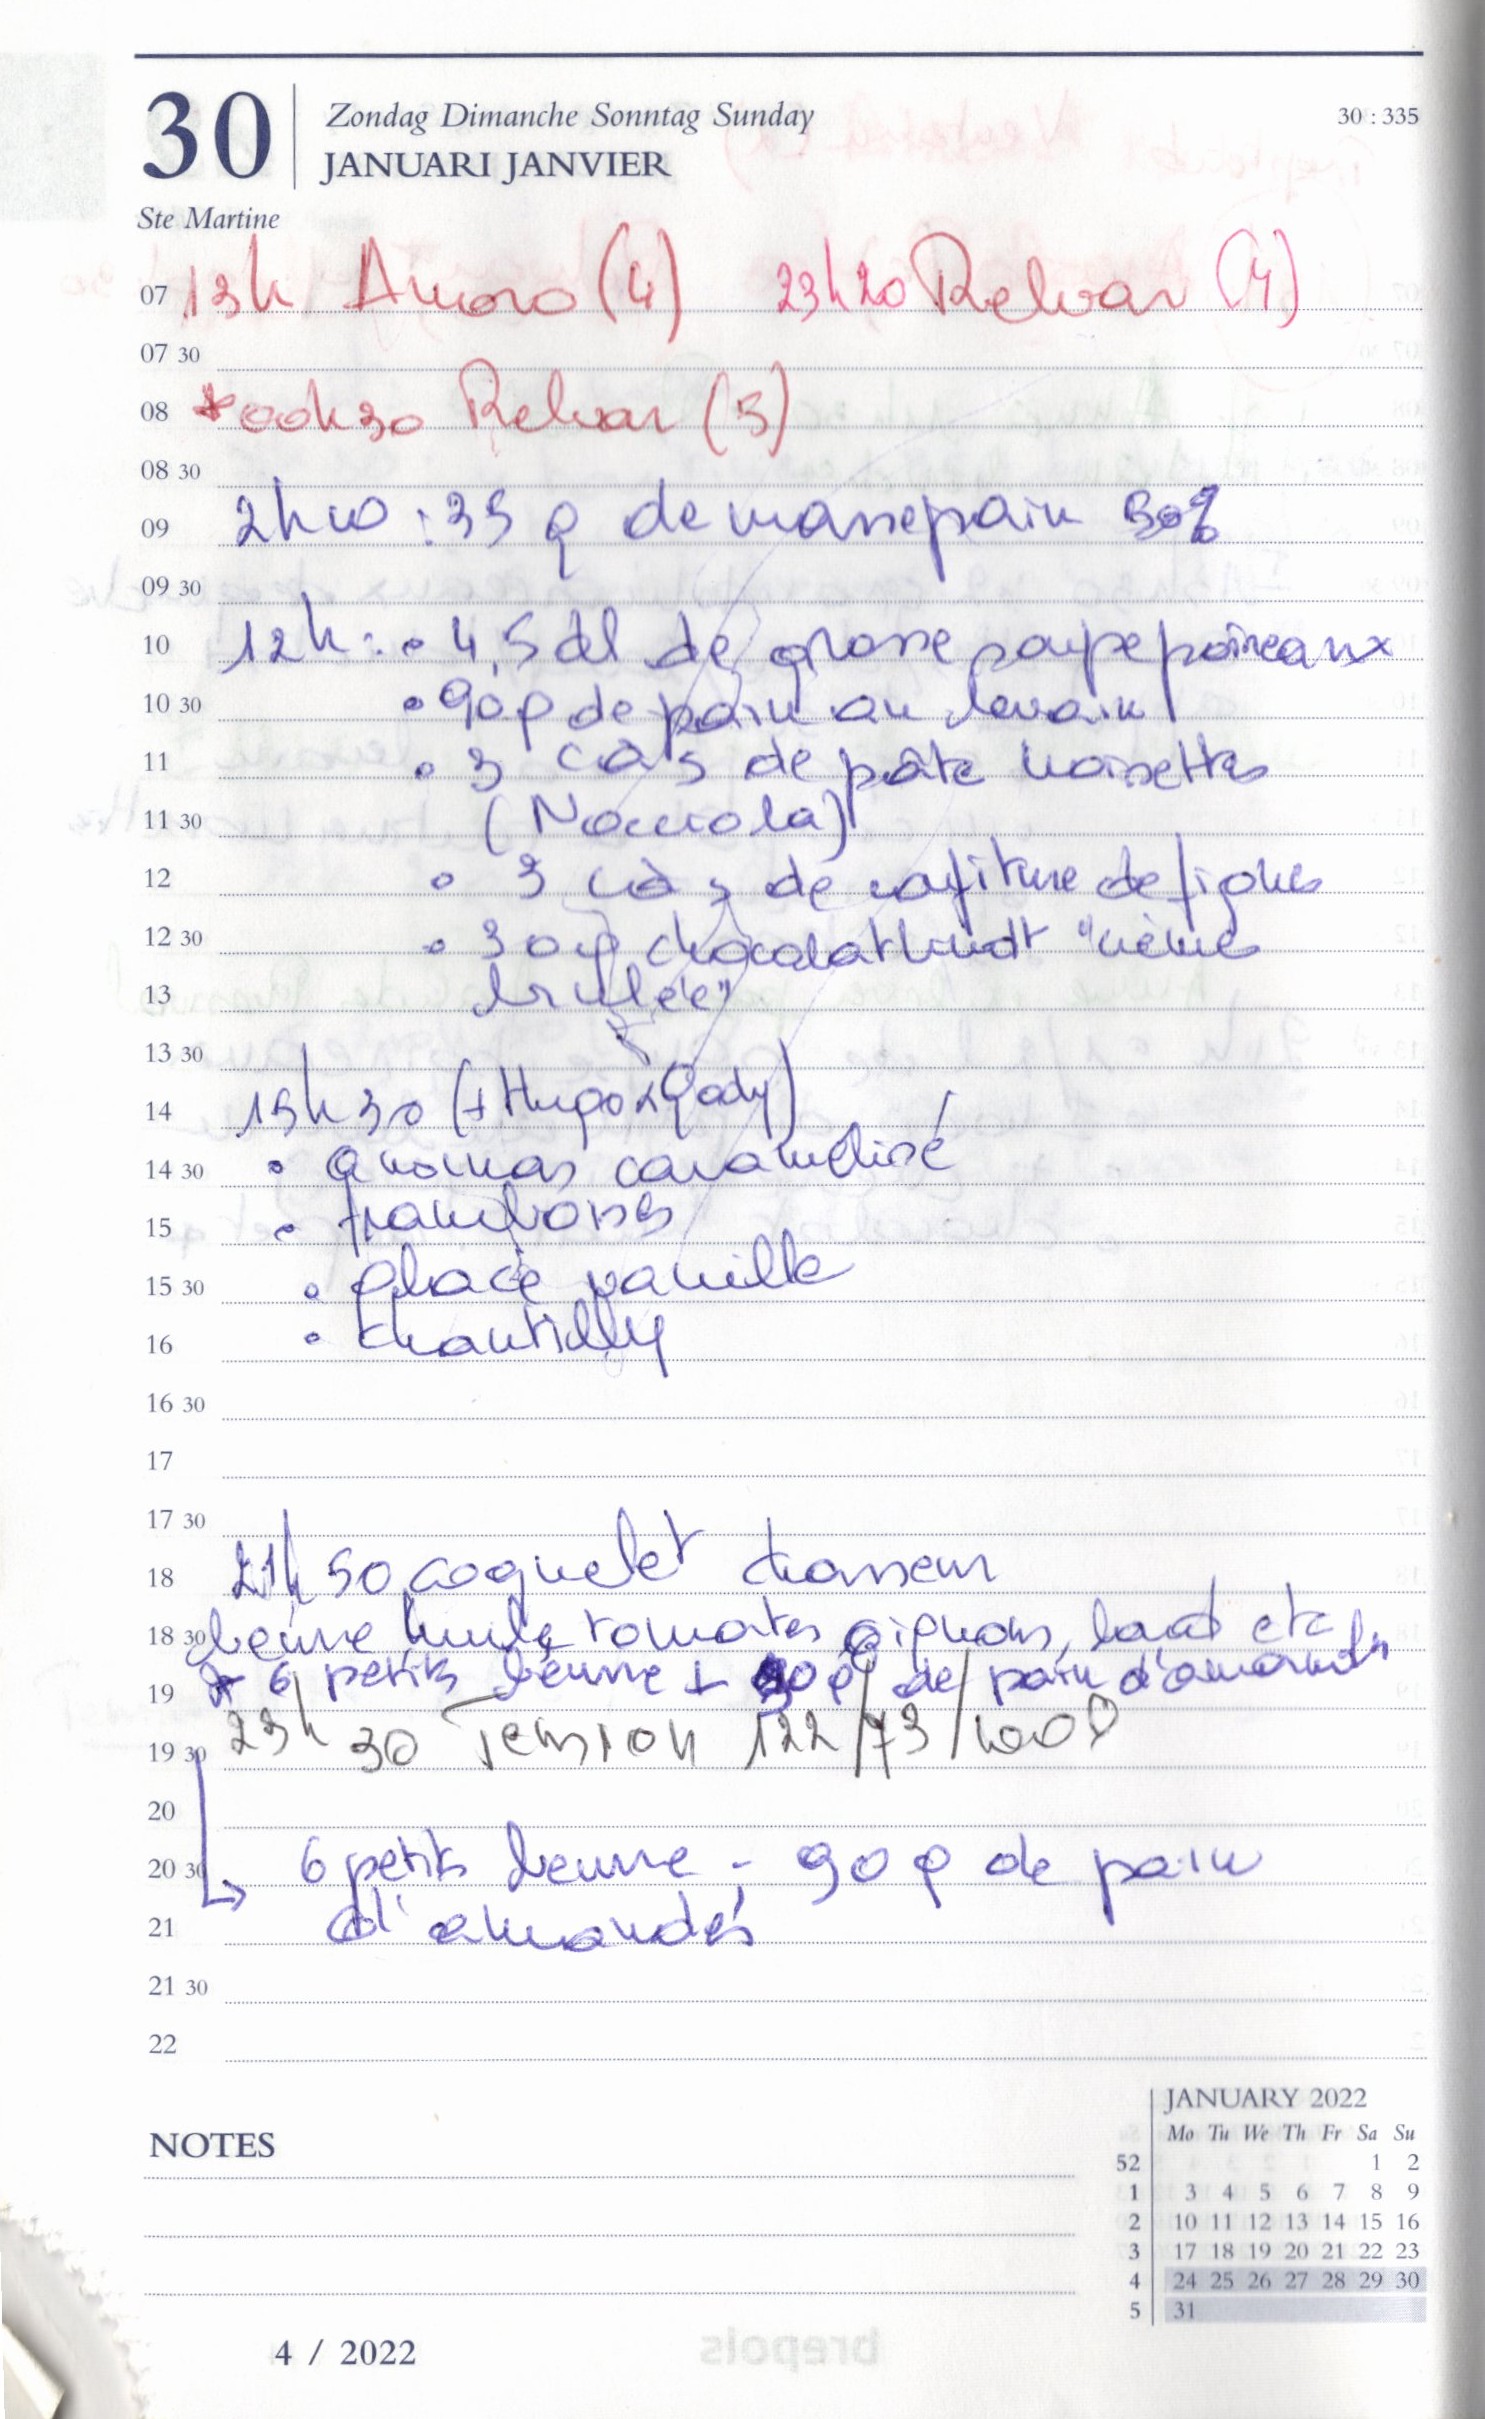 30 Zondag Dimanche Sonntag Sunday 30 : 335
JANUARI JANVIER
Ste Martine
07 13h Amoro (4) 23h20 Relvar (4)
07 30
08 * 00h30 Relvar (5)
08 30
09 2h10 : 35 g de massepain 50%
09 30
10 12h : • 4,5 dl de grosse soupe poireaux
10 30 • 90 g de pain au levain
11 • 3 càs de pâte noisettes
11 30 (Nocciola)
12 • 3 càs de confiture de figues
12 30 • 30 g chocolat Lindt "crème
13 brulée"
13 30
14 15h30 (+ Hugo & Gady)
14 30 • ananas caramélisé
15 • framboises
15 30 • glace vanille
16 • chantilly
16 30
17
17 30
18 21h50 coquelet chasseur
18 30 beurre huile tomates oignons, lard etc
19 * 6 petits beurre + 90 g de pain d'amandes
19 30 23h30 Tension 122/73/100
20
20 30 6 petits beurre - 90 g de pain
21 d'amandes
21 30
22
NOTES
JANUARY 2022
Mo Tu We Th Fr Sa Su
52 1 2
1 3 4 5 6 7 8 9
2 10 11 12 13 14 15 16
3 17 18 19 20 21 22 23
4 24 25 26 27 28 29 30
5 31
4 / 2022
brepols